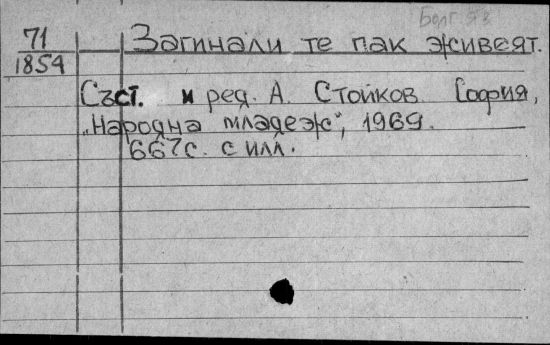 Болг яз
71
1854
Загинали те пак живеят.
Съст. и ред. А. Стойков. София,
„Народна младеж", 1969.
667с. с илл.